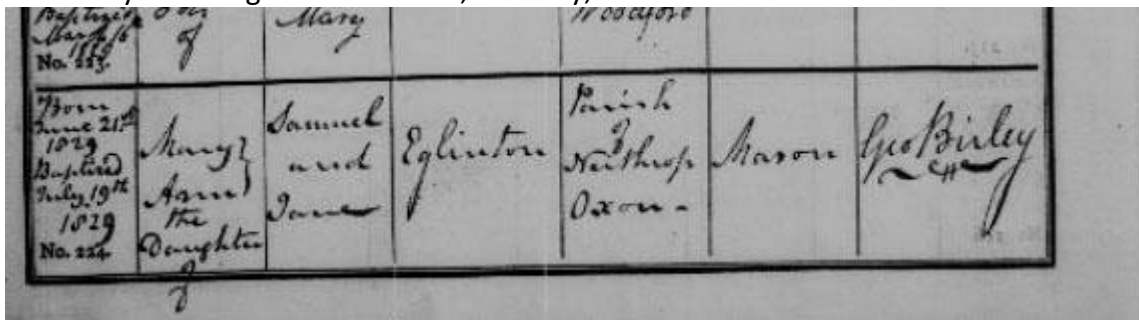 Baptized
March
1829
No. 223.
of
Mary
Woodford
Born
June 21st
1829
Baptized
July 19th
1829
No. 224.
Mary
Ann
the
Daughter
of
Samuel
and
Jane
Eglinton
Parish
of
Neithrop
Oxon-
Mason
Geo Birley